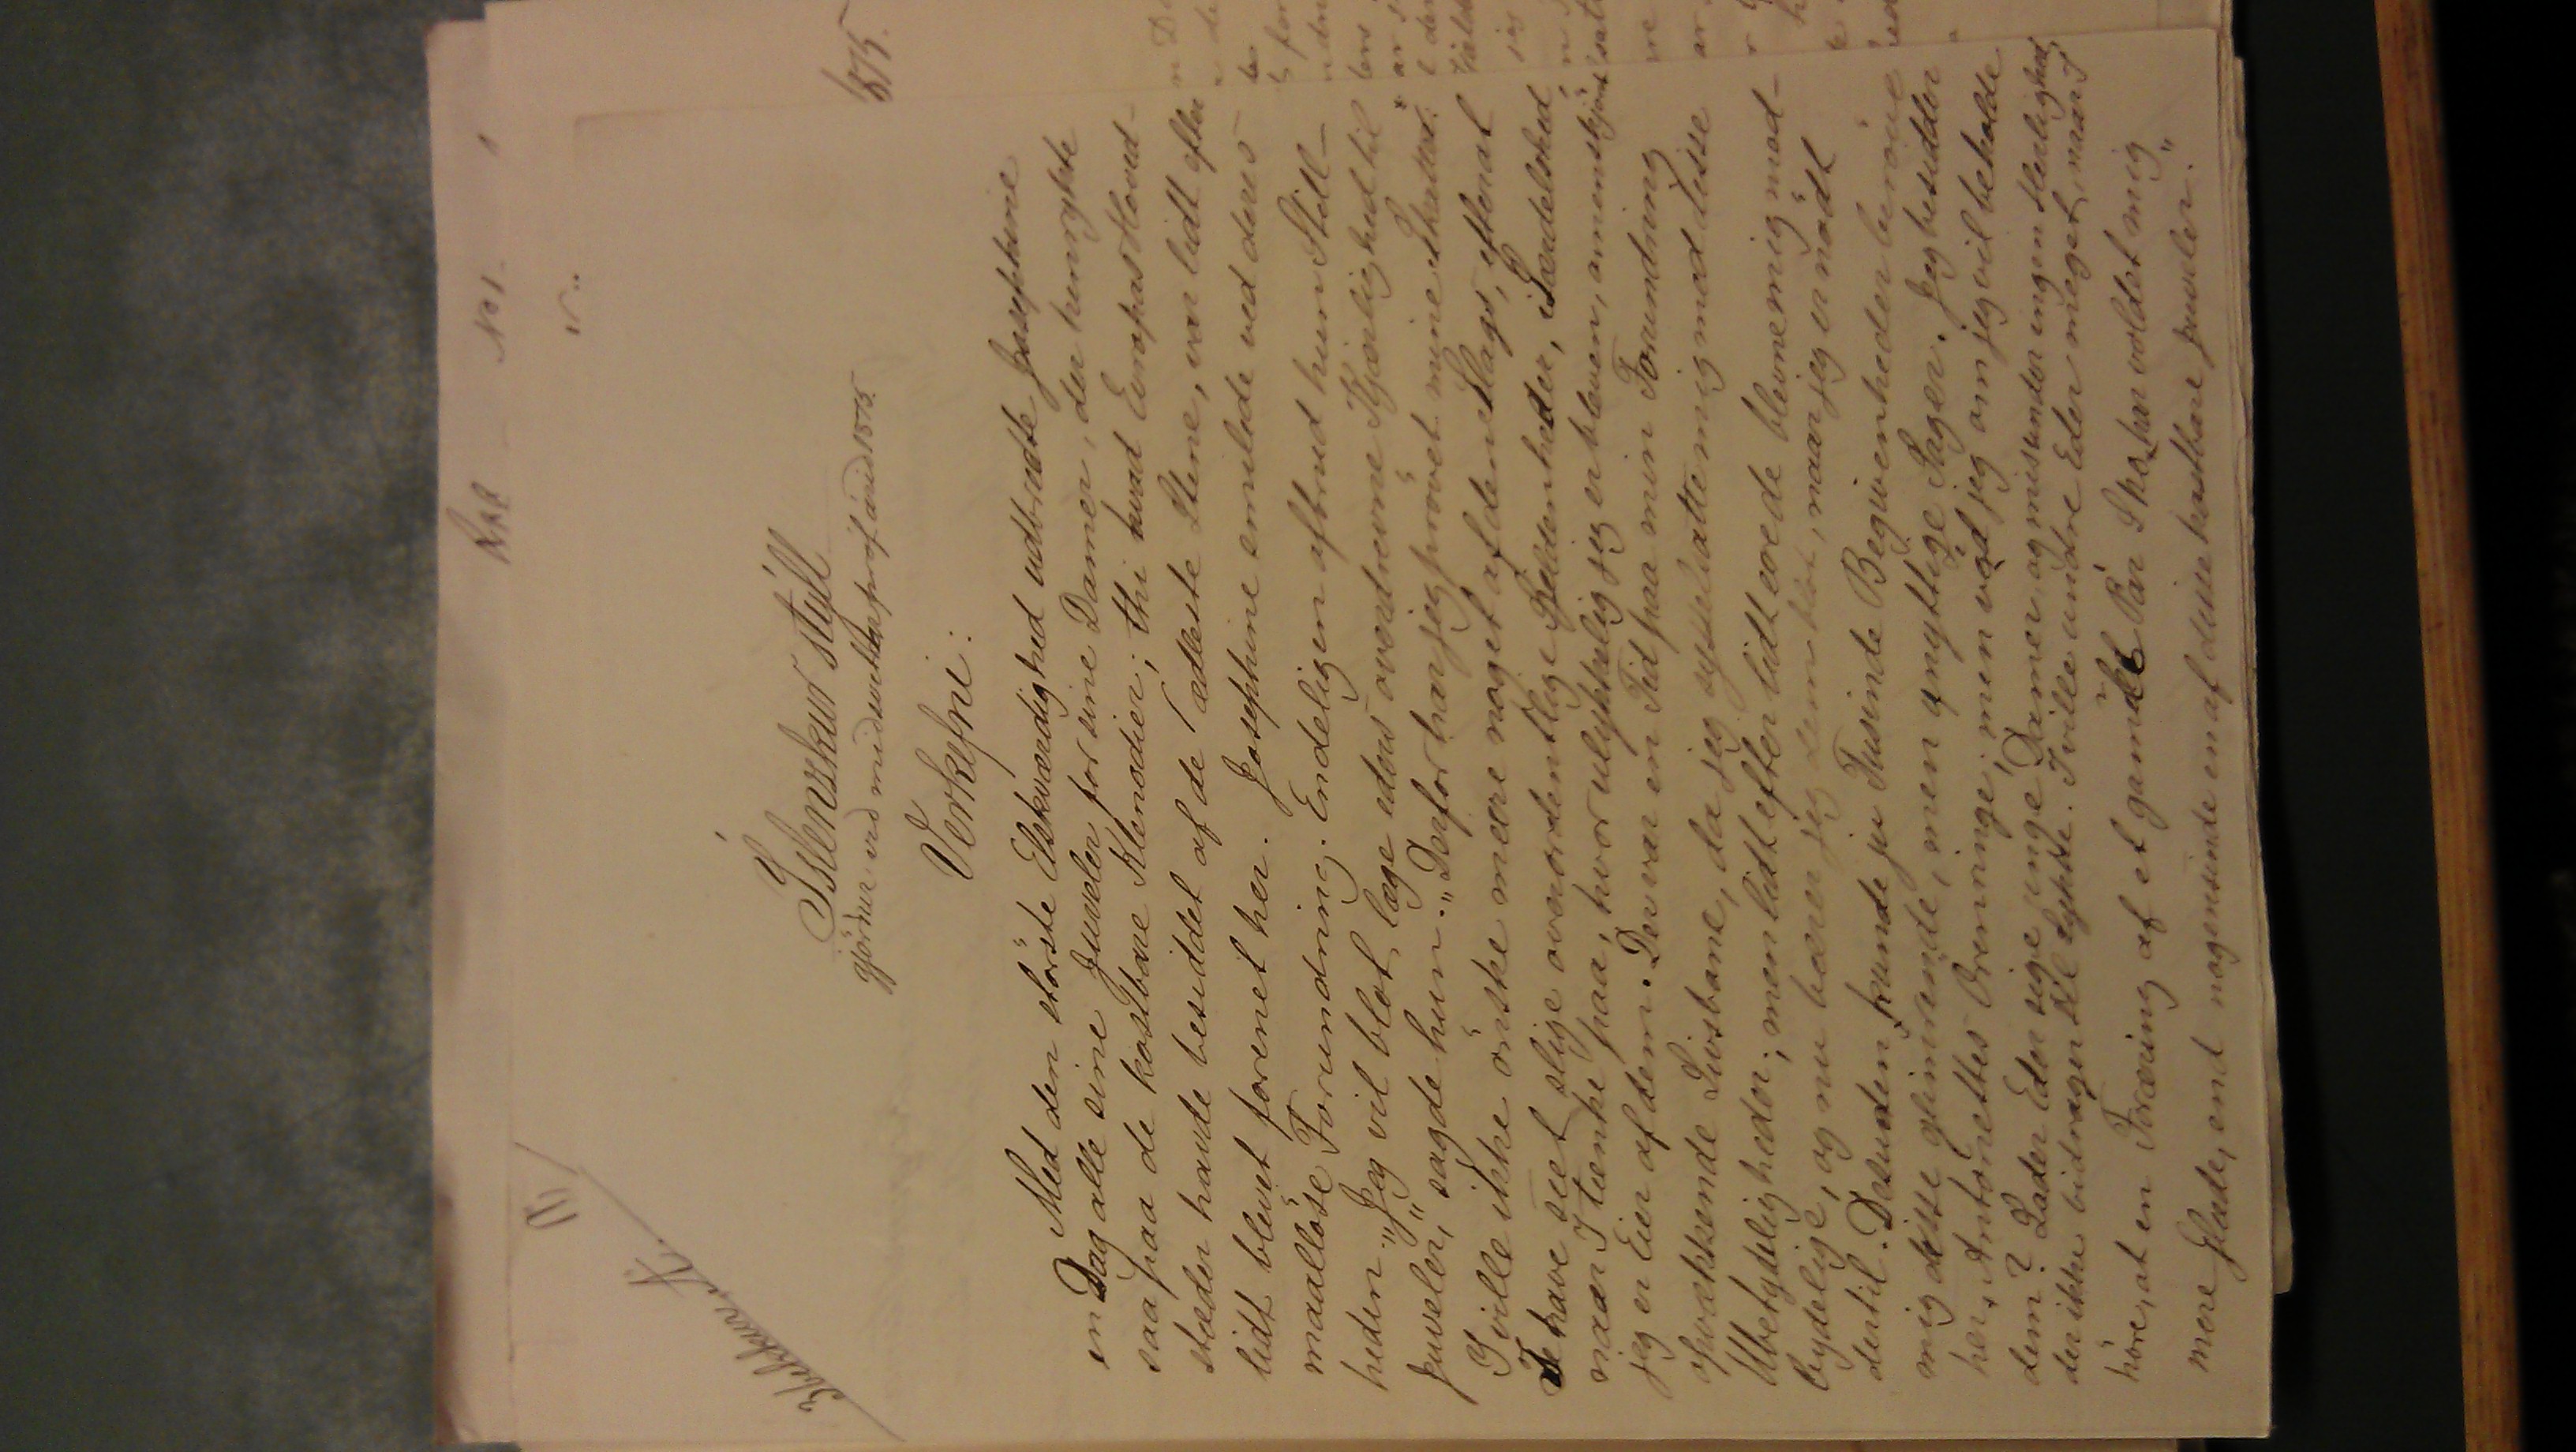 RAR – No 1. 1
1875.
III
Íslenzkur stýll
gjörður við miðsvetrarpróf árið 1875.
Verkefni:
Med den störste Elskværdighed udbredte Josephine
en Dag alle sine Juveler for sine Damer, der henrykte
saa paa de kostbare Klenodier; thi hvad Europas Hoved-
stæder havde besiddet af de ædleste Stene, var lidt efter
lidt blevet forenet her. Josephine smilede ved deres
maallöse Forundring. Endeligen afbrød hun Still-
heden. „Jeg vil blot læge eders overdrevne Kjærlighed til
Juveler," sagde hun. „Derfor har jeg prövet mine Skatter.
I ville ikke önske mere noget af den Slags, eftersat
I have seet slige overordentlige Sjeldenheder, isærdeleshed
naar I tænke paa, hvor ulykkelig jeg er bleven, omenskjönt
jeg er Eier af dem. Der var en Tid paa min Forundring
opvækkende Livsbane, da jeg sysselsatte mig med disse
Ubetydeligheder; men lidt efter lidt ere de blevne mig mod-
bydelige, og nu bærer jeg dem blot, naar jeg er nödt
dertil. Desuden kunde ju Tusinde Begivenheder beröve
mig disse glimrende, men unyttige Sager. Jeg besidder
her Antoinettes Öreringe; men ved jeg om jeg vil beholde
dem? Lader Eder sige unge Damer, og misunder ingen Herlighed,
der ikke bidrager til Lykke. I ville undre Eder meget, naar I
höre, at en Foræring af et gammelt Pár Sko har voldet mig
mere Glæde, end nogensinde en af disse kostbare Juveler."